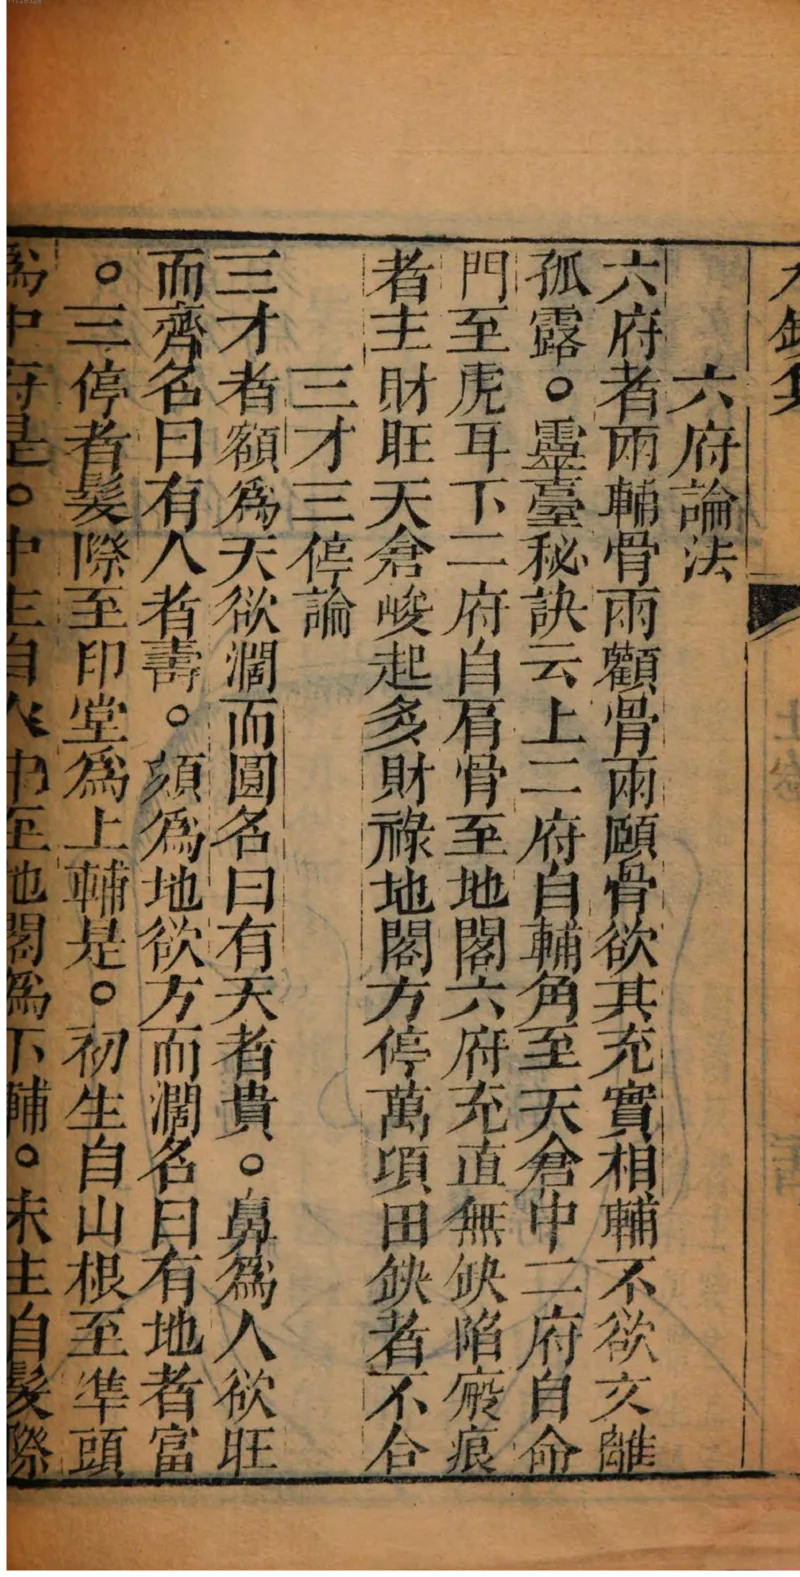 六府論法
六府者兩輔骨兩顴骨兩頤骨欲其充實相輔不欲支離
孤露。靈臺秘訣云上二府自輔角至天倉中二府自命
門至虎耳下二府自肩骨至地閣六府充直無缺陷瘢痕
者主財旺天倉峻起多財祿地閣方停萬項田缺者不合
三才三停論
三才者額爲天欲濶而圓名曰有天者貴。鼻爲人欲旺
而齊名曰有人者壽。頦爲地欲方而濶名曰有地者富
。三停者髮際至印堂爲上輔是。初生自山根至準頭
爲中府是。中主自人中至地閣爲下輔。末主自髮際